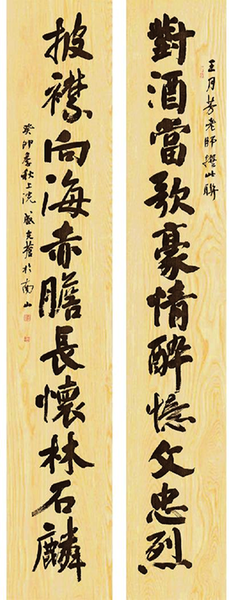 王月芳老师撰此联
對酒當歌豪情醉憶文忠烈
披襟向海赤膽長懷林石麟
癸卯季秋上浣 於南山